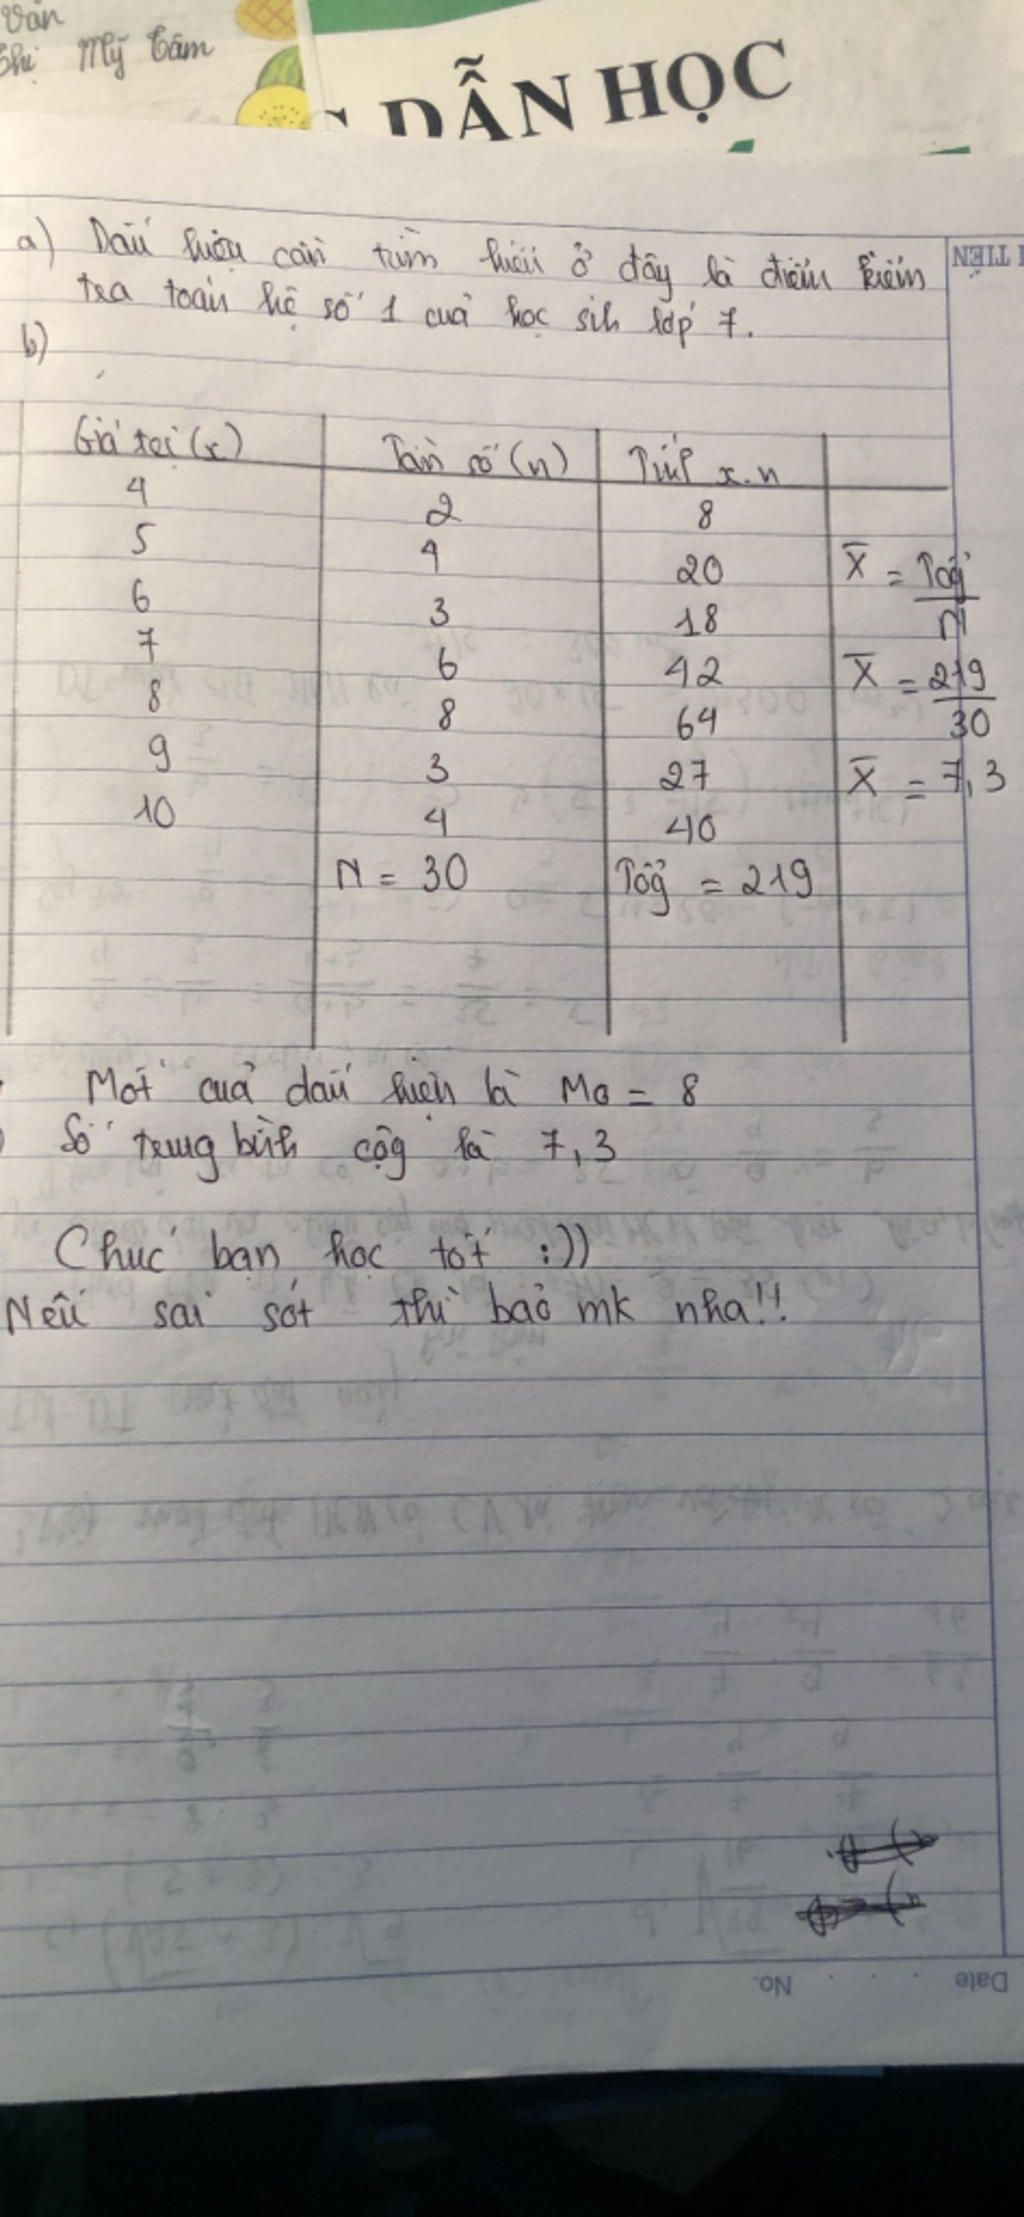 Văn
Thị Mỹ Tâm
DẪN HỌC
TIỀN
a) Dấu hiệu cần tìm hiểu ở đây là điểm kiểm
tra toán hệ số 1 của học sih lớp 7.
b)
Giá trị (x) Tần số (n) Tích x.n
4 2 8
5 4 20 X̄ = Tổg / N
6 3 18
7 6 42 X̄ = 219 / 30
8 8 64
9 3 27 X̄ = 7,3
10 4 40
N = 30 Tổg = 219
Mốt của dấu hiệu là Mo = 8
Số trug bìh cộg là 7,3
Chúc bạn học tốt :))
Nếu sai sót thì bảo mk nha!!
No. Date